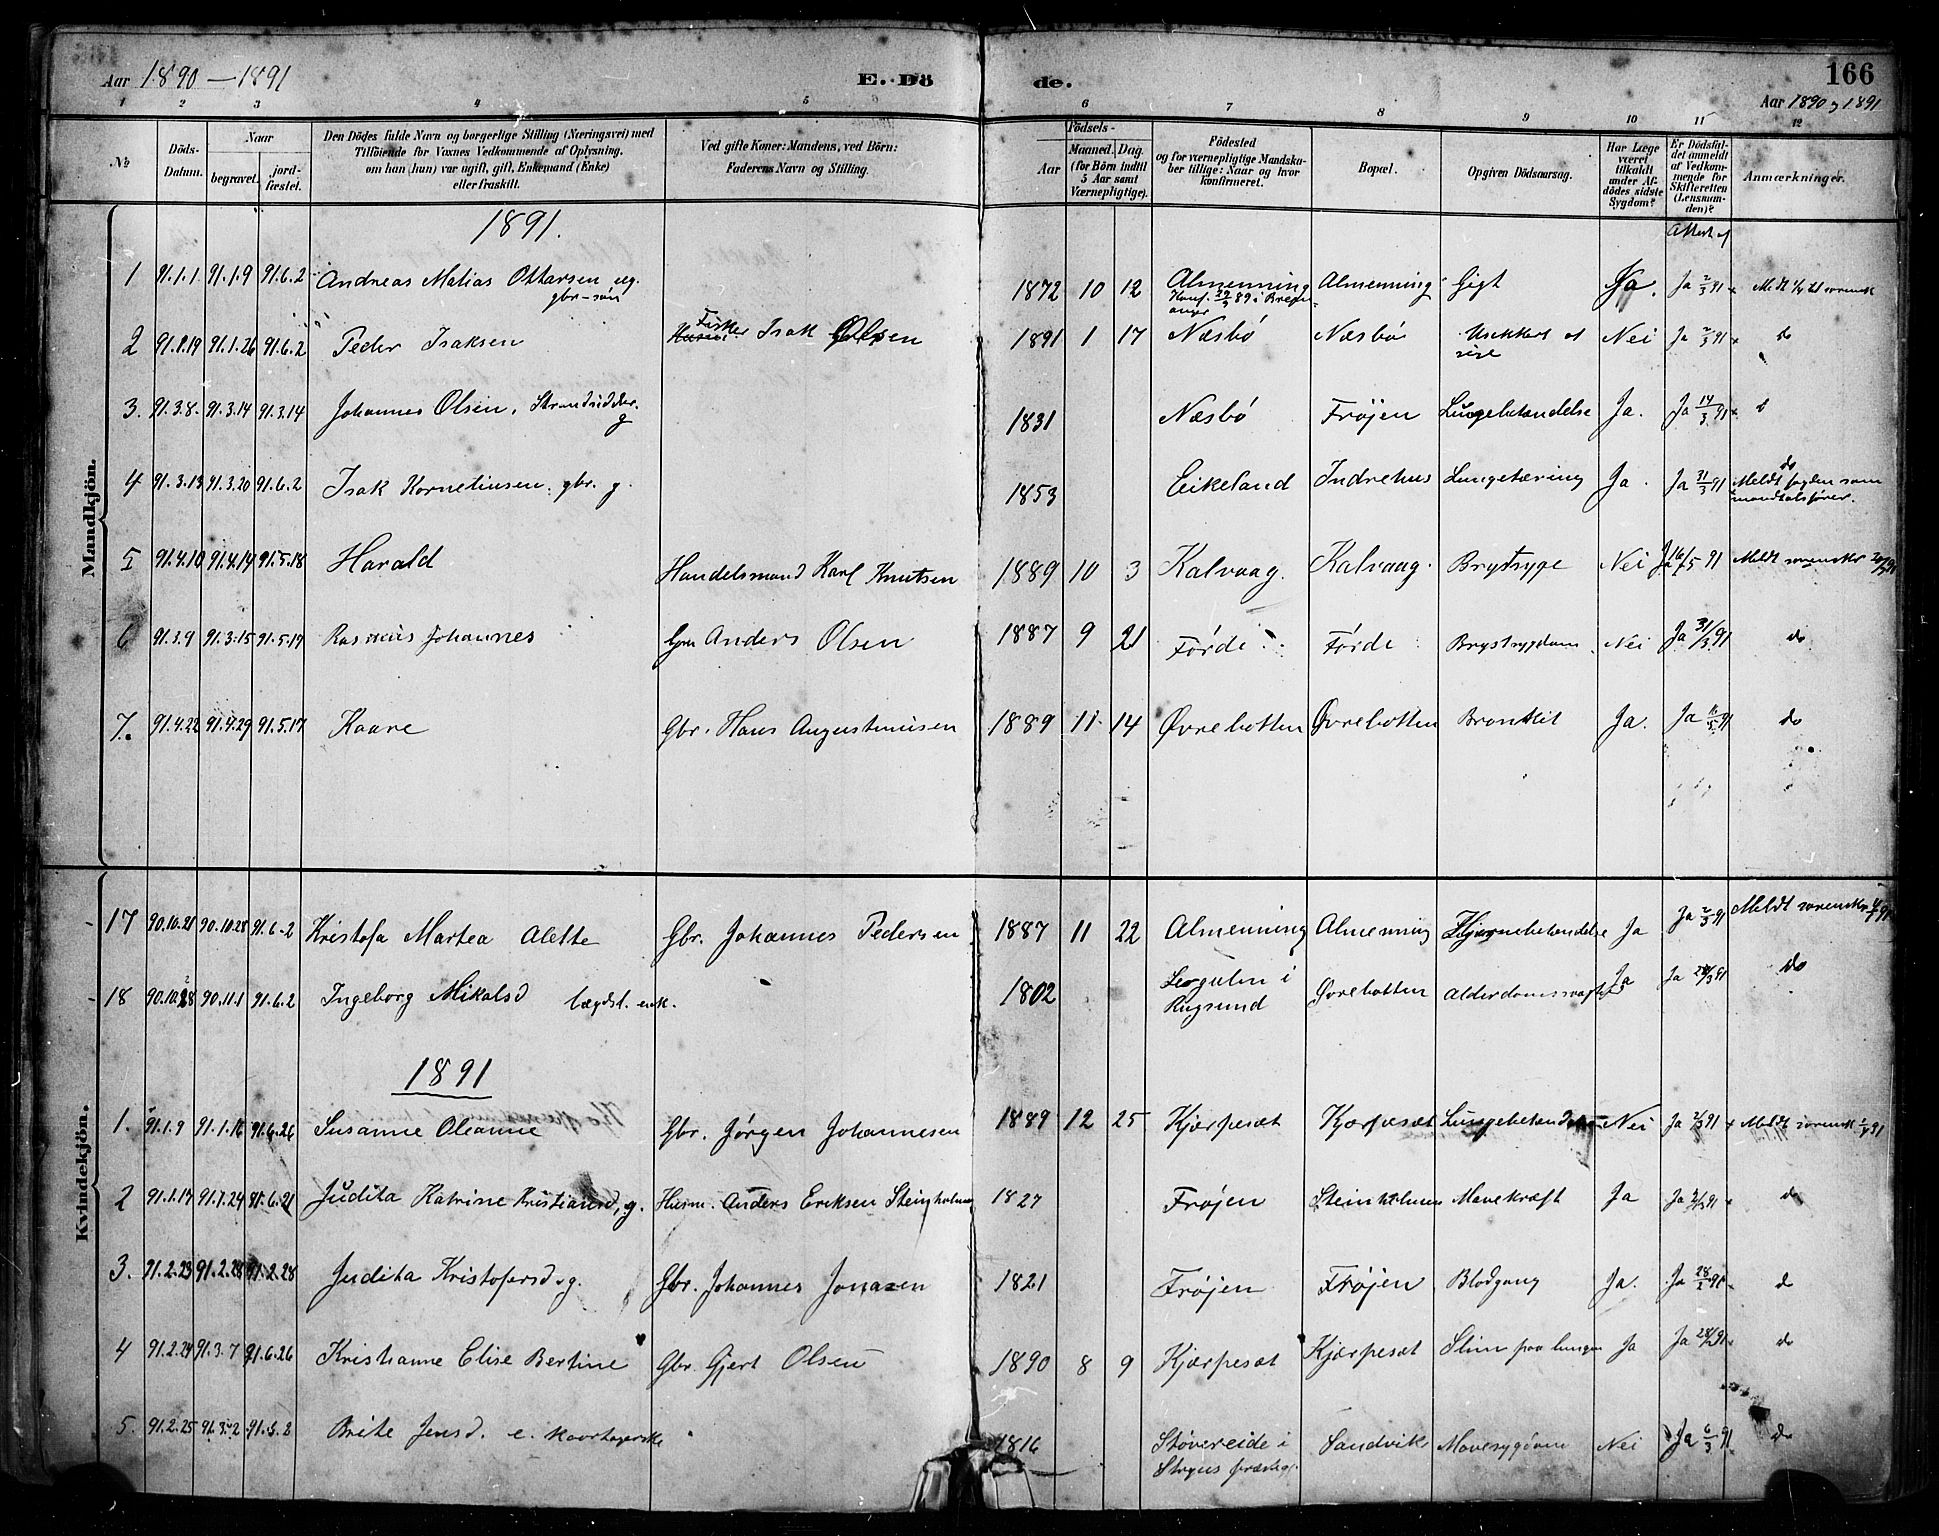 Aar 1890 – 1891 E. Dö de. 166
Aar 1890 og 1891
1 2 3 4 5 6 7 8 9 10 11 12
No
Döds-Datum.
Naar
begravet.
jordfæstet.
Den Dödes fulde Navn og borgerlige Stilling (Næringsvei) med Tilföiende for Voxnes Vedkommende af Oplysning, om han (hun) var ugift, gift, Enkemand (Enke) eller fraskilt.
Ved gifte Koner: Mandens, ved Börn: Faderens Navn og Stilling.
Födsels-
Aar
Maaned. Dag
(for Börn indtil 5 Aar samt Værnepligtige).
Födested og for værnepligtige Mandskaber tillige: Naar og hvor konfirmeret.
Bopæl.
Opgiven Dödsaarsag.
Har Læge været tilkaldt under Afdödes sidste Sygdom?
Er Dödsfaldet anmeldt af Vedkommende for Skifteretten (Lensmanden)?
Anmærkninger.
Mandkjön.
1891.
Attest af
1 91.1.1. 91.1.9 91.6.2 Andreas Matias Ottarsen ug. gbr-søn 1872 10 12 Almenning Konf. 29/9 89 i Bremanger Almenning Gigt Ja. Ja 2/3 91
2 91.1.19 91.1.26 91.6.2 Peder Isaksen Fisker Isak Olsen 1891 1 17 Næsbø Næsbø Nei Ja 2/3 91 do
3. 91.3.8. 91.3.14 91.3.14 Johannes Olsen, Strandsidder. g 1831 Næsbø Frøjen Lungebetændelse Ja. Ja 14/3 91
4 91.3.13 91.3.20 91.6.2 Isak Korneliusen, gbr. g. 1853 Eikeland Indrehus Lungetæring Ja. Ja 31/3 91 do Meldt fogden som mandtalsfører.
5 91.4.10 91.4.14 91.5.18 Harald Handelsmand Karl Knutsen 1889 10 3 Kalvaag. Kalvaag. Brystsyge Nei Ja 16/5 91 Meldt sorenskr
6 91.3.9 91.3.15 91.5.19 Rasmus Johannes Gbr Anders Olsen 1887 9 21 Førde Førde Brystsygdom Nei Ja 31/3 91 do
7. 91.4.22 91.4.29 91.5.17 Kaare Gbr. Hans Augustinusen 1889 11 14 Øvrebotten Øvrebotten Bronkit Ja. Ja 91 do
Kvindekjön.
17 90.10.21 90.10.28 91.6.2 Kristofa Martea Alette Gbr. Johannes Pedersen 1887 11 22 Almenning Almenning Hjernebetændelse Ja Ja 2/3 91 Meldt sorenskr
18 90.10.28 90.11.1 91.6.2 Ingeborg Mikalsd lægdsl. enk. 1802 i Rugsund Øvrebotten Alderdomssvaghed Ja Ja do
1891
1. 91.1.9 91.1.16 91.6.26 Susanne Oleanne Gbr. Jørgen Johannesen 1889 12 25 Kjærpesæt Kjærpesæt Lungebetændelse Nei Ja 2/3 91 Meldt sorensk
2 91.1.17 91.1.24 91.6.21 Judita Katrine Kristiansd, g. Husm. Anders Eriksen Steinholmen 1827 Frøjen Steinholmen Mavekræft Ja Ja 2/3 91 do
3. 91.2.23 91.2.28 91.2.28 Judita Kristofersd, g. Gbr. Johannes Jonasen 1821 Frøjen Frøjen Blodgang Ja. Ja 28/2 91 do
4 91.2.24 91.3.7 91.6.26 Kristianne Elise Bertine Gbr. Gjert Olsen 1890 8 9 Kjærpesæt Kjærpesæt Slim paa lungen Ja Ja 28/2 91 do
5. 91.2.25 91.3.2 91.3.2 Brite Jensd. e. 1816 Støvereide i præstegj. Sandvik Mavesygdom Nei Ja 6/3 91 do